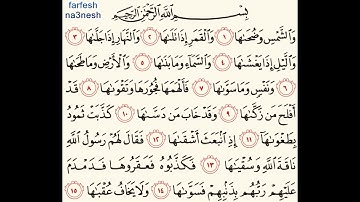 farfesh
na3nesh
بِسْمِ اللَّهِ الرَّحْمَٰنِ الرَّحِيمِ
وَالشَّمْسِ وَضُحَىٰهَا ١ وَالْقَمَرِ إِذَا تَلَىٰهَا ٢ وَالنَّهَارِ إِذَا جَلَّىٰهَا ٣
وَالَّيْلِ إِذَا يَغْشَىٰهَا ٤ وَالسَّمَاءِ وَمَا بَنَىٰهَا ٥ وَالْأَرْضِ وَمَا طَحَىٰهَا
٦ وَنَفْسٍ وَمَا سَوَّىٰهَا ٧ فَأَلْهَمَهَا فُجُورَهَا وَتَقْوَىٰهَا ٨ قَدْ
أَفْلَحَ مَن زَكَّىٰهَا ٩ وَقَدْ خَابَ مَن دَسَّىٰهَا ١٠ كَذَّبَتْ ثَمُودُ
بِطَغْوَىٰهَا ١١ إِذِ انبَعَثَ أَشْقَىٰهَا ١٢ فَقَالَ لَهُمْ رَسُولُ اللَّهِ
نَاقَةَ اللَّهِ وَسُقْيَىٰهَا ١٣ فَكَذَّبُوهُ فَعَقَرُوهَا فَدَمْدَمَ
عَلَيْهِمْ رَبُّهُم بِذَنبِهِمْ فَسَوَّىٰهَا ١٤ وَلَا يَخَافُ عُقْبَىٰهَا ١٥